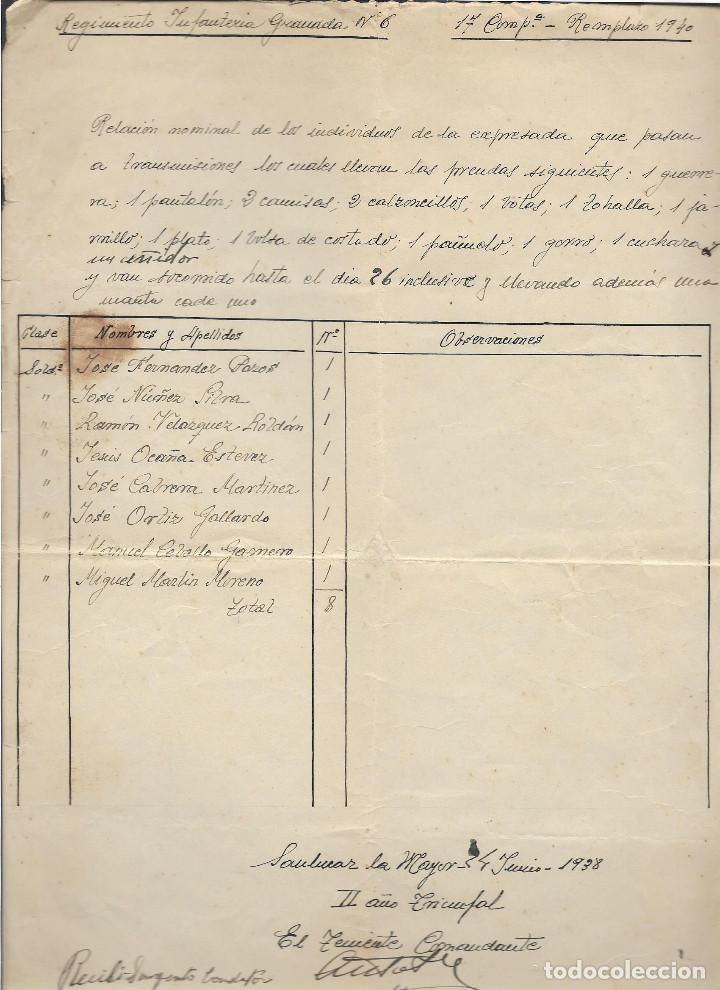 Regimiento Infanteria Granada Nº 6 17 Compª - Remplazo 1940
Relación nominal de los individuos de la expresada que pasan
a transmisiones los cuales llevan las prendas siguientes: 1 guerre-
ra; 1 pantalón; 2 camisas; 2 calzoncillos, 1 votas; 1 tohalla; 1 ja-
rrillo; 1 plato; 1 volsa de costado; 1 pañuelo; 1 gorro; 1 cuchara y
un ceñidor
y van socorrido hasta el dia 26 inclusive y llevando además una
manta cada uno
Clase Nombres y Apellidos Nº Observaciones
Soldº José Fernandez Pozos 1
" José Núñez 1
" Ramón Velazquez Roldán 1
" Jesús Ocaña Estevez 1
" José Cabrera Martinez 1
" José Ortiz Gallardo 1
" Manuel Gamero 1
" Miguel Martin Moreno 1
Total 8
Sanlucar la Mayor 24 Junio - 1938
II año Triunfal
El Teniente Comandante
Recibí Sargento
todocoleccion